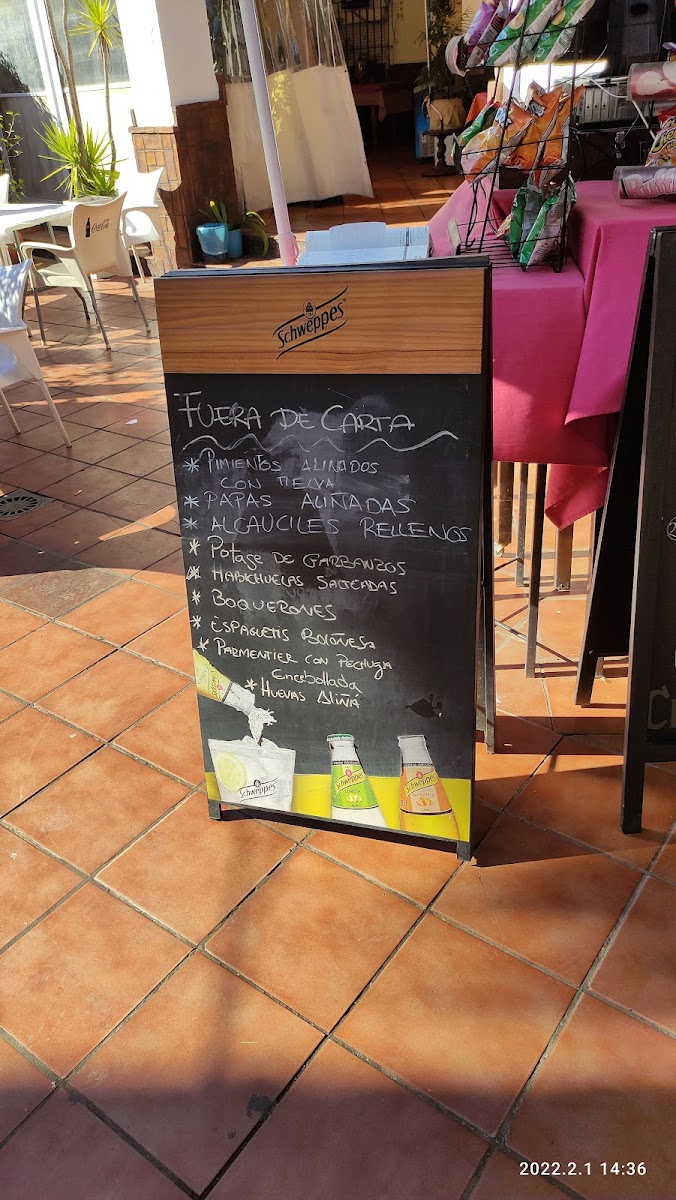 Coca-Cola
Schweppes
FUERA DE CARTA
* PIMIENTOS ALINADOS
CON MELVA
* PAPAS ALIÑADAS
* ALCAUCILES RELLENOS
* POTAJE DE GARBANZOS
* HABICHUELAS SALTEADAS
* BOQUERONES
* ESPAGUETIS BOLOÑESA
* PARMENTIER CON PECHUGA
Encebollada
* HUEVAS ALIÑÁ
Schweppes
Schweppes
Schweppes
2022.2.1 14:36